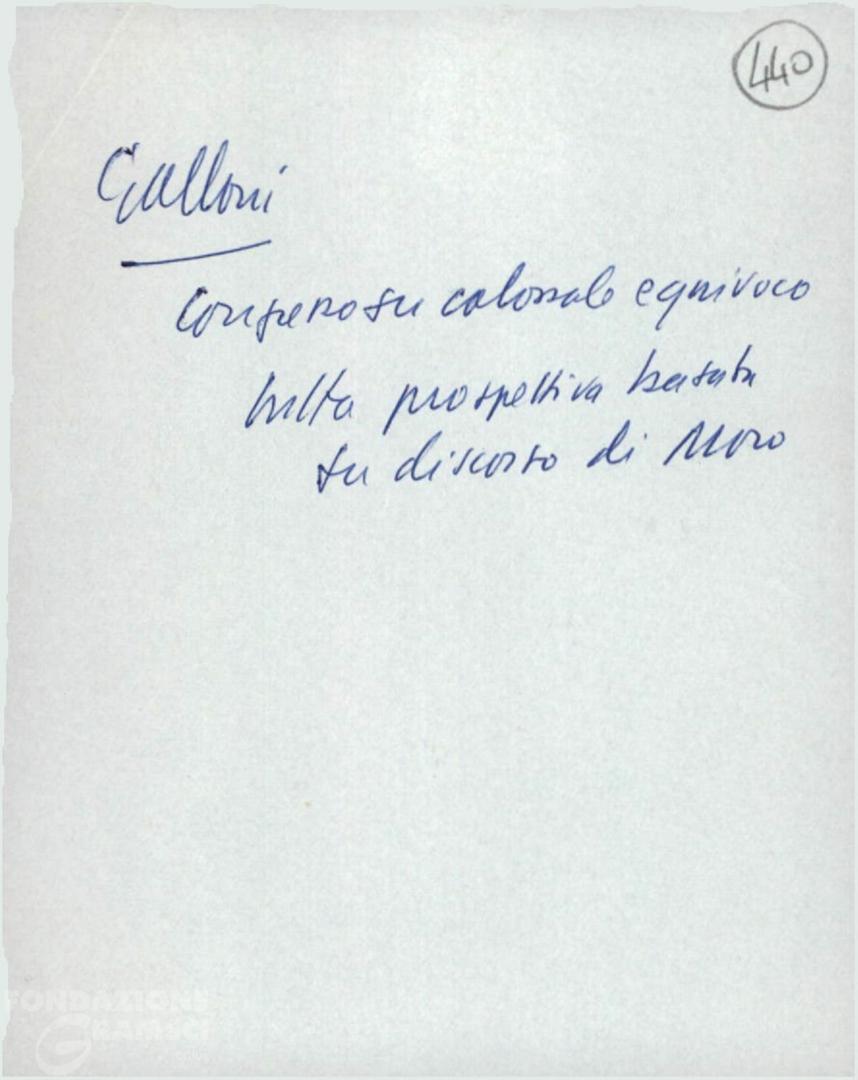 440
Galloni
Congresso su colossale equivoco
tutta prospettiva basata
su discorso di Moro
FONDAZIONE
GRAMSCI